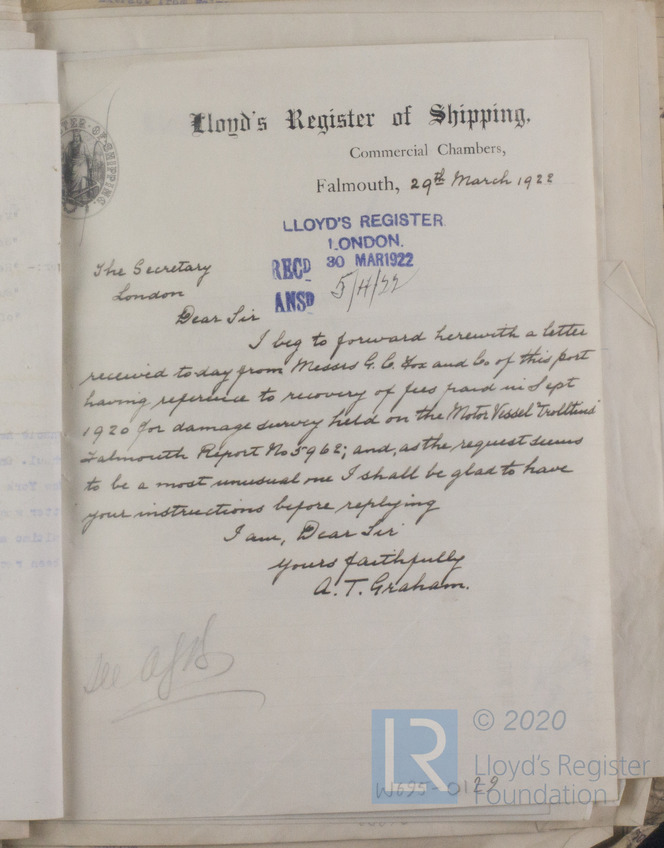 Lloyd's Register of Shipping.
Commercial Chambers,
Falmouth, 29th March 1922
LLOYD'S REGISTER
LONDON.
RECD 30 MAR 1922
ANSD 5/4/22
The Secretary
London
Dear Sir
I beg to forward herewith a letter
received today from Messrs G. C. Fox and Co of this port
having reference to recovery of fees paid in Sept
1920 for damage survey held on the Motor Vessel "Trolltind"
Falmouth Report No 5962; and, as the request seems
to be a most unusual one I shall be glad to have
your instructions before replying
I am, Dear Sir
Yours faithfully
A. T. Graham.
See
© 2020
LR
Lloyd's Register
Foundation
W695-0129